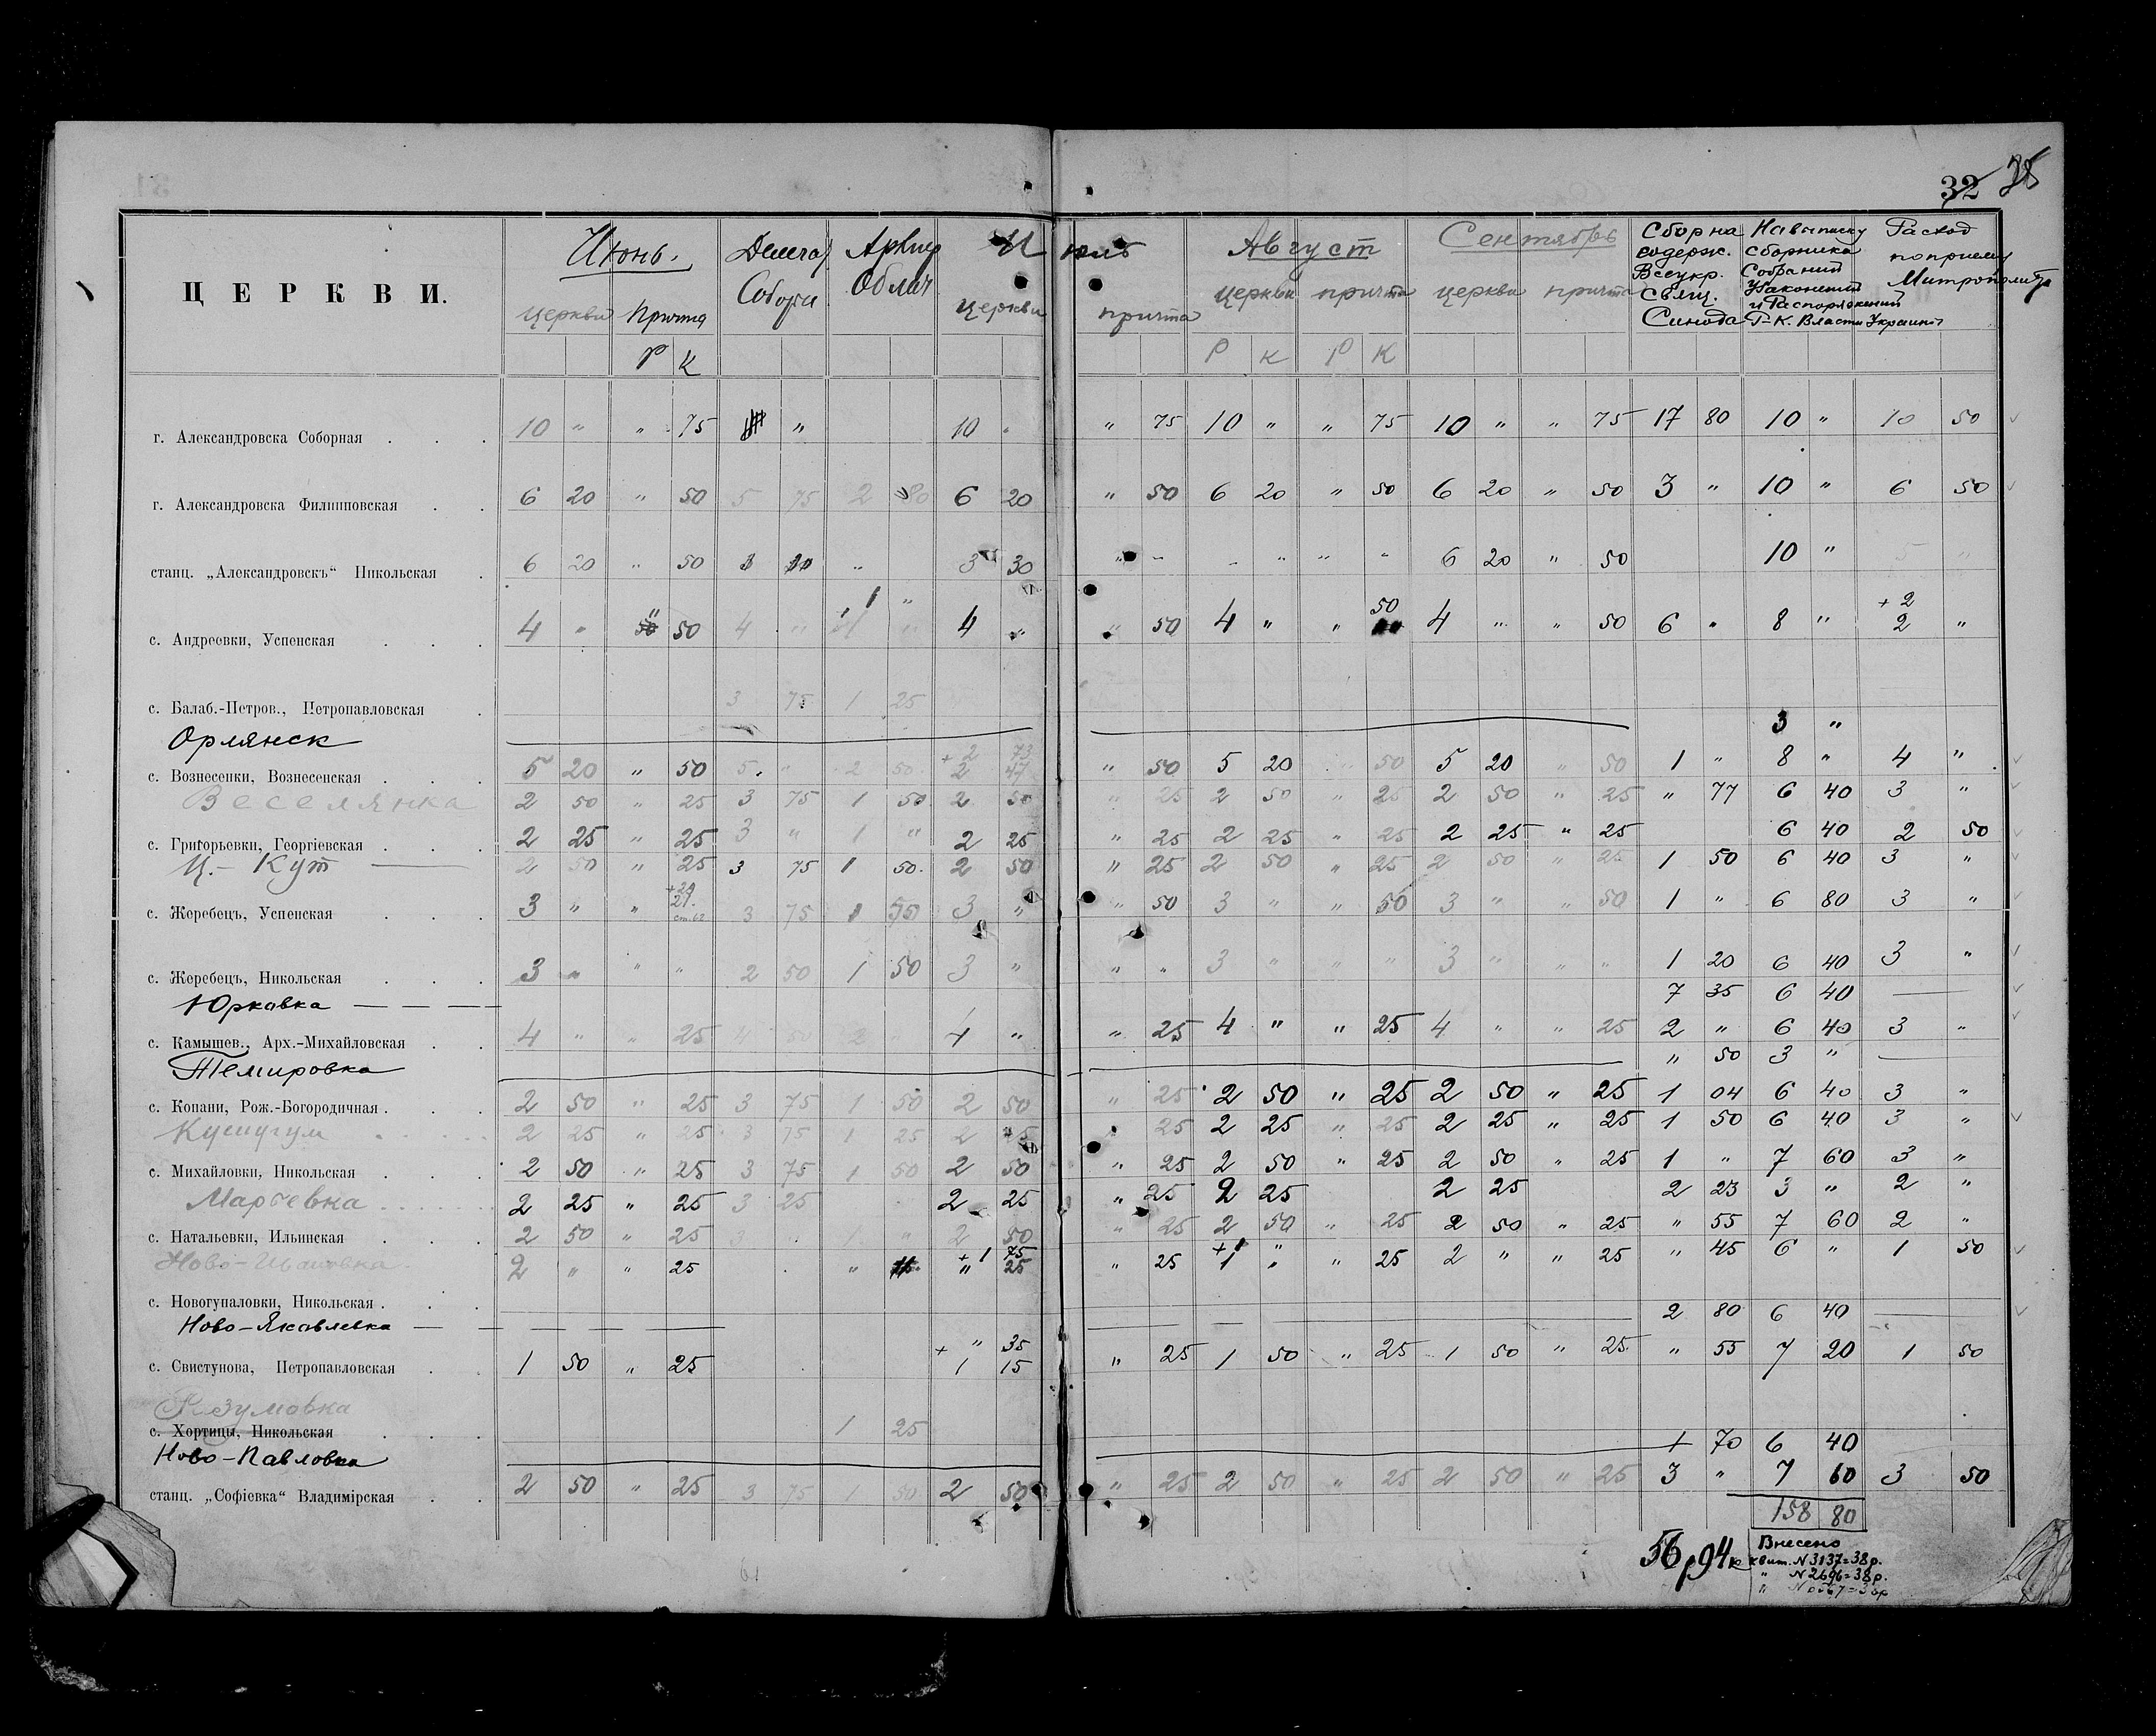 32 38
ЦЕРКВИ.
Июнь. церкви причта Р К
Собору
Облич
Июль церкви причта
Август церкви причта Р К Р К
Сентябрь церкви причта
Сбор на содерж. Всеукр. Свящ. Синода
На выписку Сборника Собраний Узаконений и Распоряжений Р-К. Власти Украины
Расход по приему Митрополита
г. Александровска Соборная . . . 10 " " 75 " 10 " " 75 10 " " 75 10 " " 75 17 80 10 " 10 50
г. Александровска Филипповская . . 6 20 " 50 5 75 2 80 6 20 " 50 6 20 " 50 6 20 " 50 3 " 10 " 6 50
станц. „Александровскъ“ Никольская . 6 20 " 50 3 30 " - - " " " 6 20 " 50 10 " 5 "
1 " 50 + 2
с. Андреевки, Успенская . . . 4 " " 50 4 " " 4 " " 50 4 " " 4 " " 50 6 " 8 " 2 "
с. Балаб.-Петров., Петропавловская . 3 75 1 25
Орлянск 3 "
+ 2 73
с. Вознесенки, Вознесенская . . . 5 20 " 50 5 " 2 50 2 47 " 50 5 20 " 50 5 20 " 50 1 " 8 " 4 "
Веселянка 2 50 " 25 3 75 1 50 2 50 " 25 2 50 " 25 2 50 " 25 " 77 6 40 3 "
с. Григорьевки, Георгіевская . . . 2 25 " 25 3 " 1 " 2 25 " 25 2 25 " 25 2 25 " 25 6 40 2 50
Ц.- Кут — 2 50 " 25 3 75 1 50 2 50 " 25 2 50 " 25 2 50 " 25 1 50 6 40 3 "
с. Жеребецъ, Успенская . . . 3 " " 3 75 1 3 " " 50 3 " " 50 3 " " 50 1 " 6 80 3 "
с. Жеребецъ, Никольская . . . 3 " " " 2 50 1 50 3 " " " 3 " " " 3 " " " 1 20 6 40 3 "
Юрковка — — — 7 35 6 40 —
с. Камышев., Арх.-Михайловская . . 4 " " 25 4 50 2 4 " " 25 4 " " 25 4 " " 25 2 " 6 40 3 "
Темировка " 50 3 " —
с. Копани, Рож.-Богородичная . . . 2 50 " 25 3 75 1 50 2 50 " 25 2 50 " 25 2 50 " 25 1 04 6 40 3 "
Кушугум . . . . . 2 25 " 25 3 75 1 25 2 25 2 25 " 25 2 25 " 25 1 50 6 40 3 "
с. Михайловки, Никольская . . . 2 50 " 25 3 75 1 50 2 50 " 25 2 50 " 25 2 50 " 25 1 " 7 60 3 "
2 25 " 25 3 25 2 25 " 25 2 25 2 25 2 23 3 " 2 "
с. Натальевки, Ильинская . . . 2 50 " 25 3 1 " 2 50 " 25 2 50 " 25 2 50 " 25 " 55 7 60 2 "
Ново- 2 " " 25 " + 1 75 " 25 " 25 + 1 " 1 " " 25 2 " " 25 " 45 6 " 1 50
с. Новогупаловки, Никольская . . .
Ново-Яковлевка — — — — — 2 80 6 40 —
+ " 35
с. Свистунова, Петропавловская . . 1 50 " 25 1 15 " 25 1 50 " 25 1 50 " 25 " 55 7 20 1 50
Разумовка
с. Хортицы, Никольская . . . 1 25
Ново-Павловка 1 70 6 40
станц. „Софіевка“ Владимірская . . 2 50 " 25 3 75 1 50 2 50 " 25 2 50 " 25 2 50 " 25 3 " 7 60 3 50
158 80
56р94к
Внесено
квит. N 3137=38р.
" N 2696=38р.